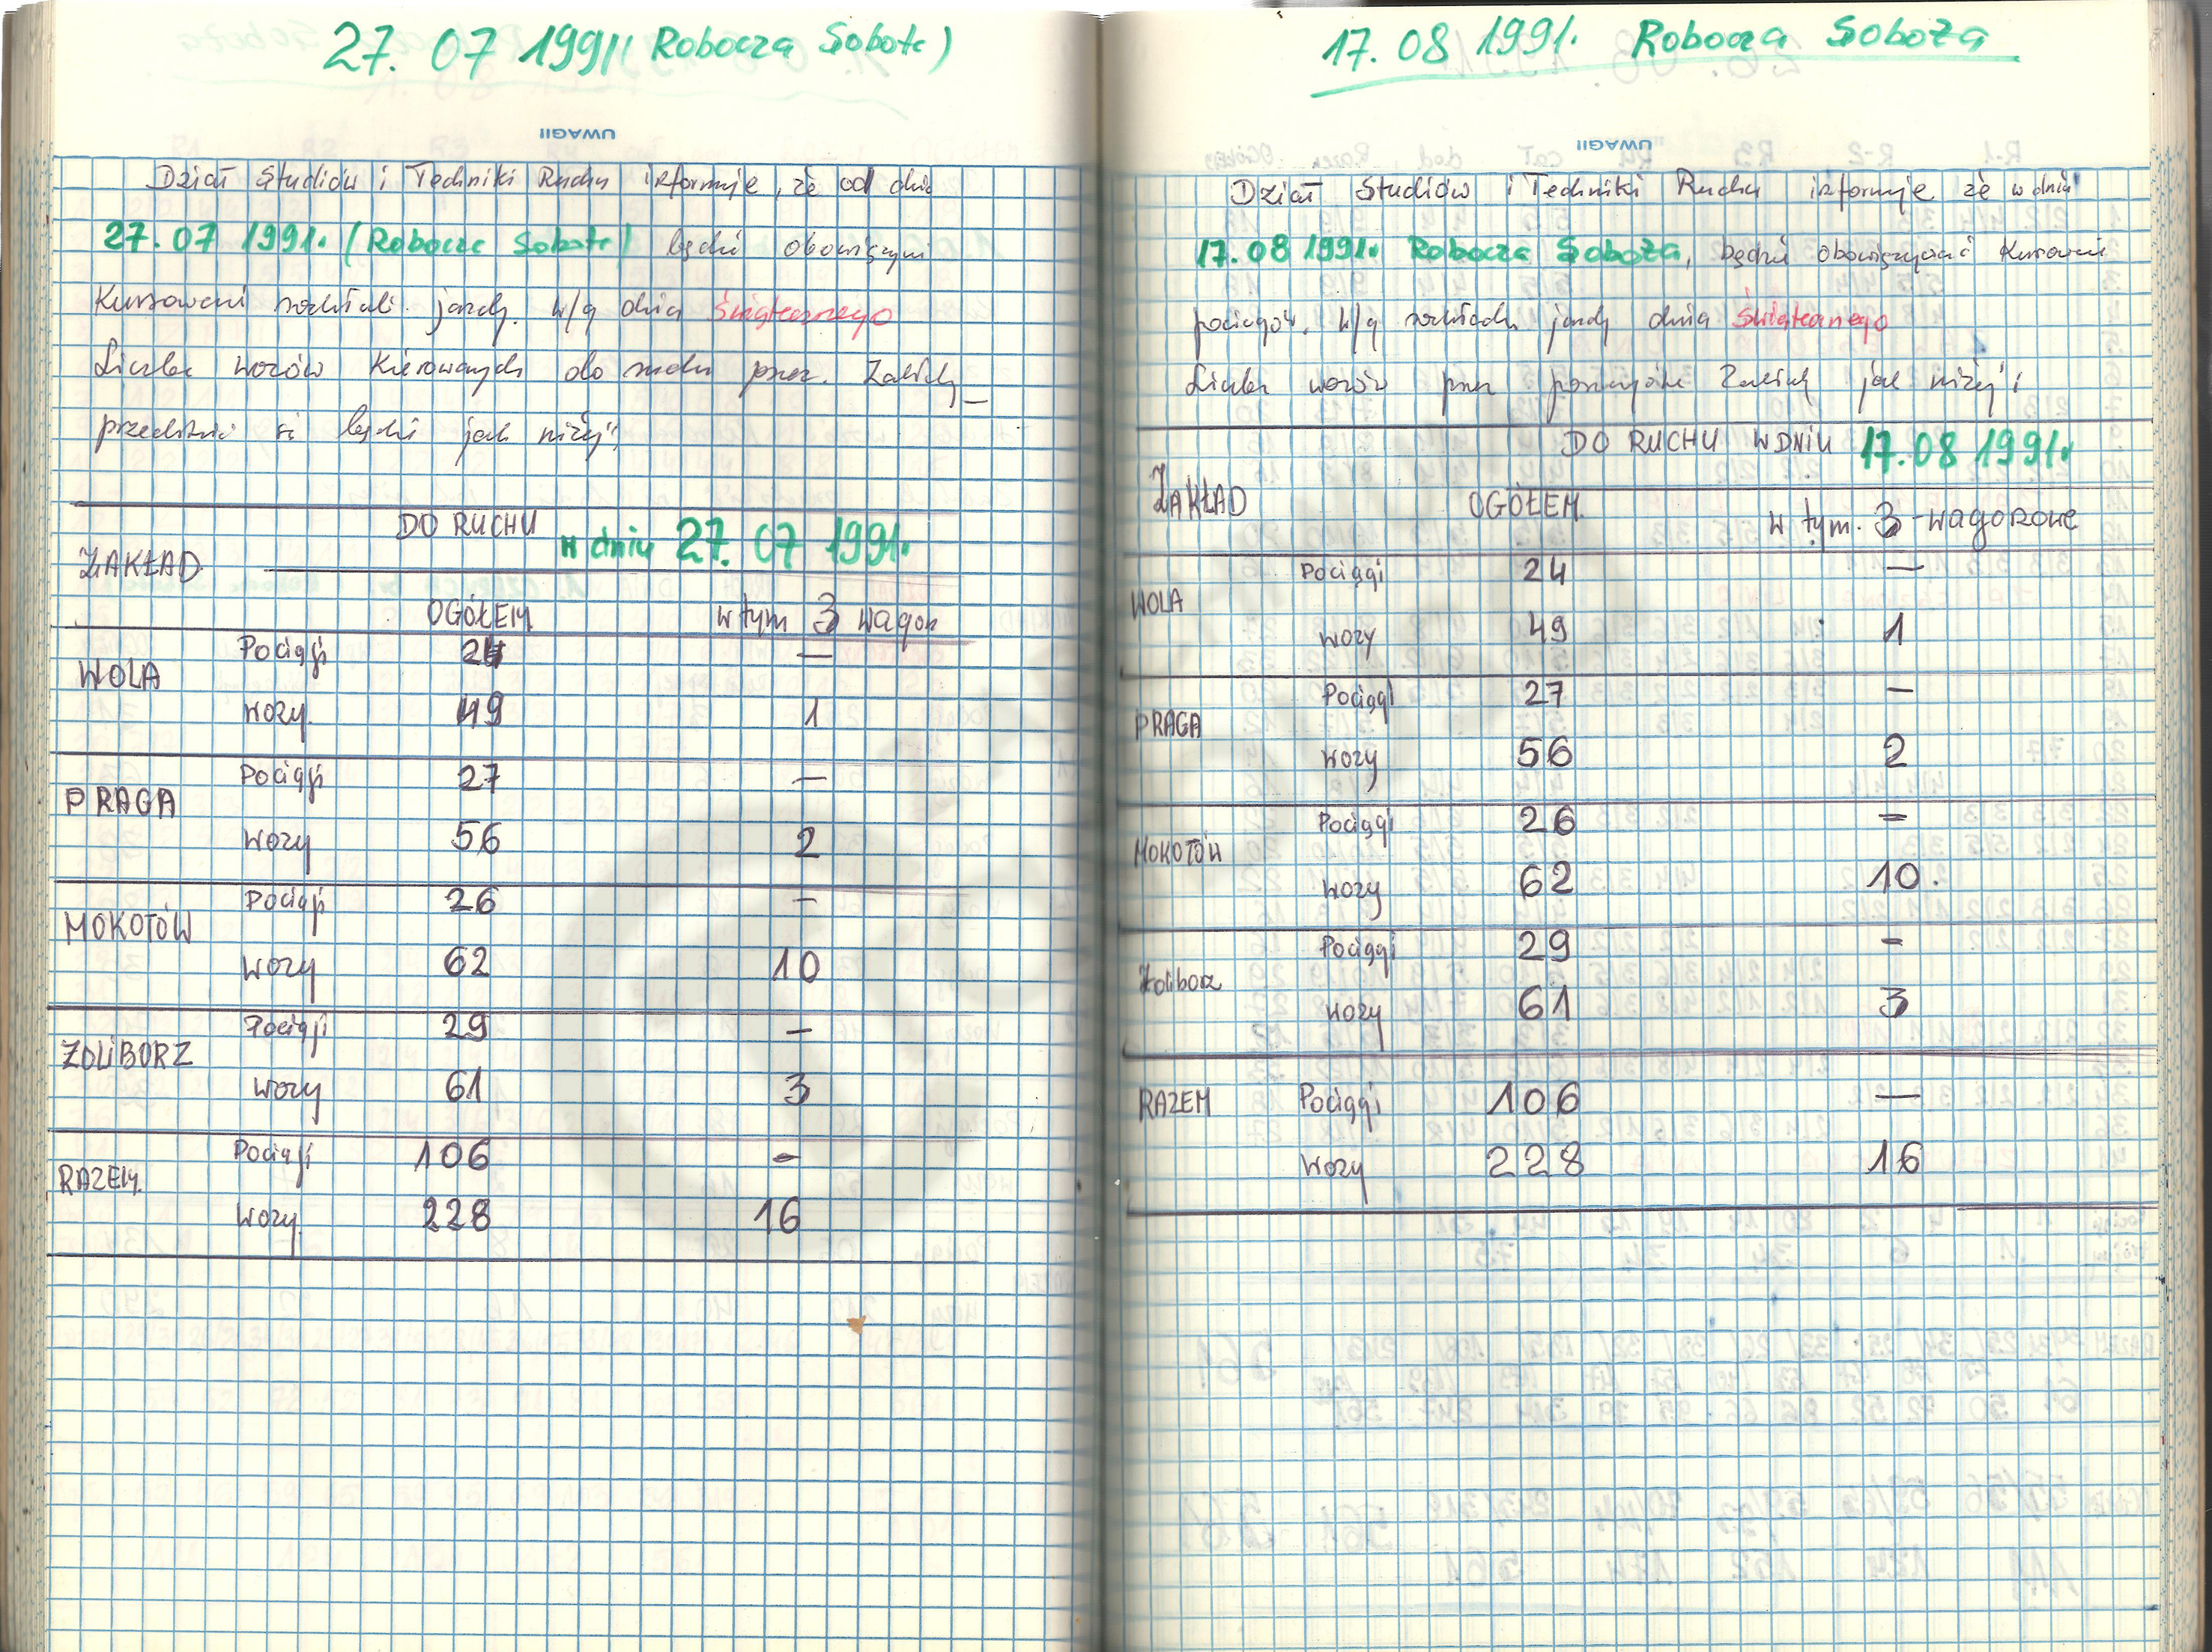 27. 07 1991 (Robocza Sobota)
UWAGI!
Dział Studiów i Techniki Ruchu informuje, że od dnia
27. 07 1991. (Robocza Sobota) będzie obowiązywał
Kursowani rozkład. jazdy. w/g dnia świątecznego
Liczba wozów kierowanych do ruchu przez. Zakłady
przedstawia się będzie jak niżej"
ZAKŁAD. DO RUCHU w dniu 27. 07 1991.
OGÓŁEM w tym 3 wagon
WOLA Pociągi 24 —
Wozy. 49 1
PRAGA Pociągi 27 —
Wozy 56 2
MOKOTÓW Pociągi 26 —
Wozy 62 10
ŻOLIBORZ Pociągi 29 —
Wozy 61 3
RAZEM. Pociągi 106 —
Wozy. 228 16
17. 08 1991. Robocza Sobota
UWAGI!
Dział Studiów i Techniki Ruchu informuje że w dniu
17. 08 1991. Robocza Sobota, będzie obowiązywać Kursowanie
pociągów. w/g rozkładu jazdy dnia świątecznego
Liczba wozów przez poszczególne Zakłady jak niżej:
DO RUCHU W DNIU 17. 08 1991.
ZAKŁAD OGÓŁEM. w tym. 3-wagonowe
WOLA Pociągi 24 —
Wozy 49 1
PRAGA Pociągi 27 —
Wozy 56 2
MOKOTÓW Pociągi 26 =
Wozy 62 10.
Żoliborz Pociągi 29 -
Wozy 61 3
RAZEM Pociągi 106 —
Wozy 228 16